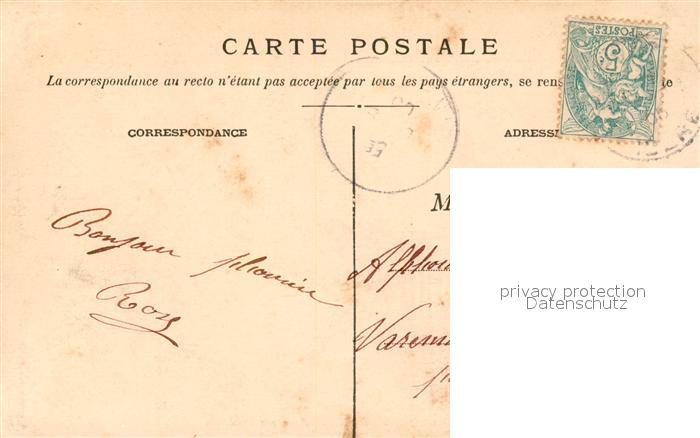 CARTE POSTALE
La correspondance au recto n'étant pas acceptée par tous les pays étrangers, se rens
CORRESPONDANCE
ADRESS
M
Bonjour
Roy
Alphon
Varenn
POSTES
5c
privacy protection
Datenschutz